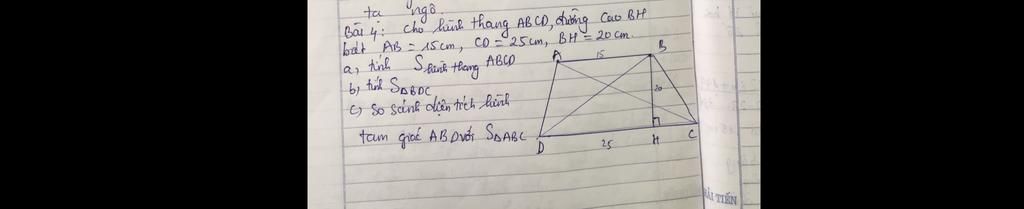 ta ngô.
Bài 4: Cho hình thang ABCD, đường cao BH
biết AB = 15cm, CD = 25cm, BH = 20cm.
a, tính S hình thang ABCD
b, tính SΔBDC
c, So sánh diện tích hình
tam giác ABD với SΔABC
A 15 B
20
D 25 H C
HẢI TIẾN